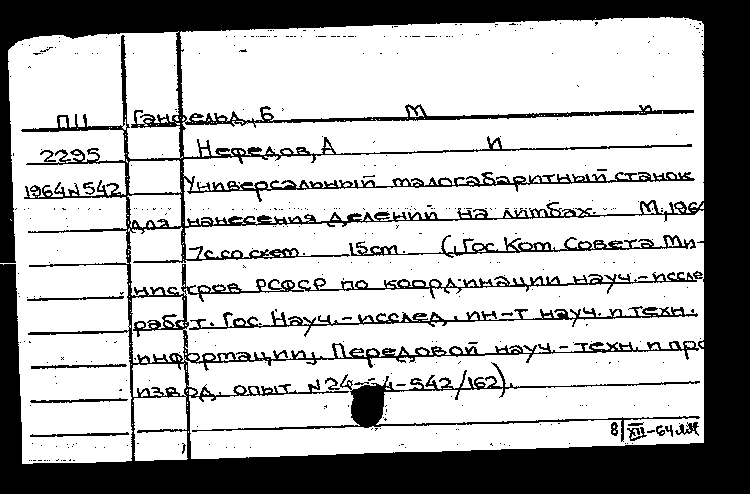 ПП Ганфельд, Б М п
2295 Нефедов, А И
1964 N 542 Универсальный малогабаритный станок
для нанесения делений на лимбах. М., 196
7с. со схем. 15 см. (Гос. Ком. Совета Ми-
нистров РСФСР по координации науч.-иссле
работ. Гос. Науч.-исслед. ин-т науч. и техн.
информации. Передовой науч.-техн. и про
извод. опыт. N 24-64-542/162).
8/XII-64